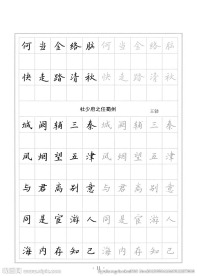 何当金络脑何当金络脑
快走踏清秋快走踏清秋
杜少府之任蜀州
城阙辅三秦城阙辅三秦
风烟望五津风烟望五津
与君离别意与君离别意
同是宦游人同是宦游人
海内存知己海内存知己
11